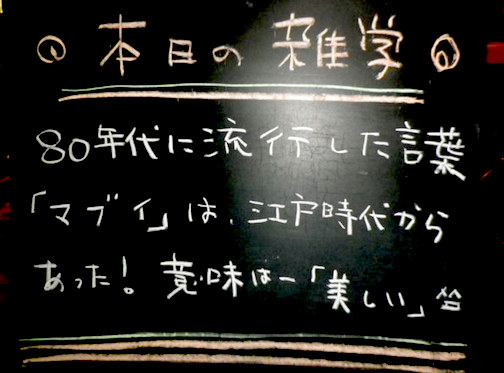 本日の雑学
80年代に流行した言葉
「マブイ」は、江戸時代から
あった！意味は一「美しい」